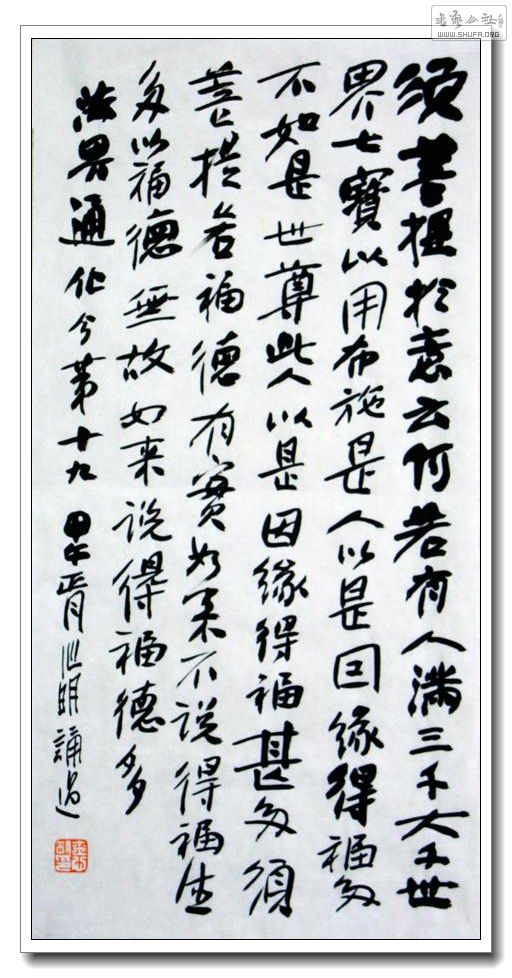 须菩提於意云何若有人满三千大千世
界七寶以用布施是人以是因缘得福多
不如是世尊此人以是因缘得福甚多须
菩提若福德有實如来不说得福德
多以福德無故如来说得福德多
法界通化分第十九 甲午正月 明誦过
公社
WWW.SHUFA.ORG